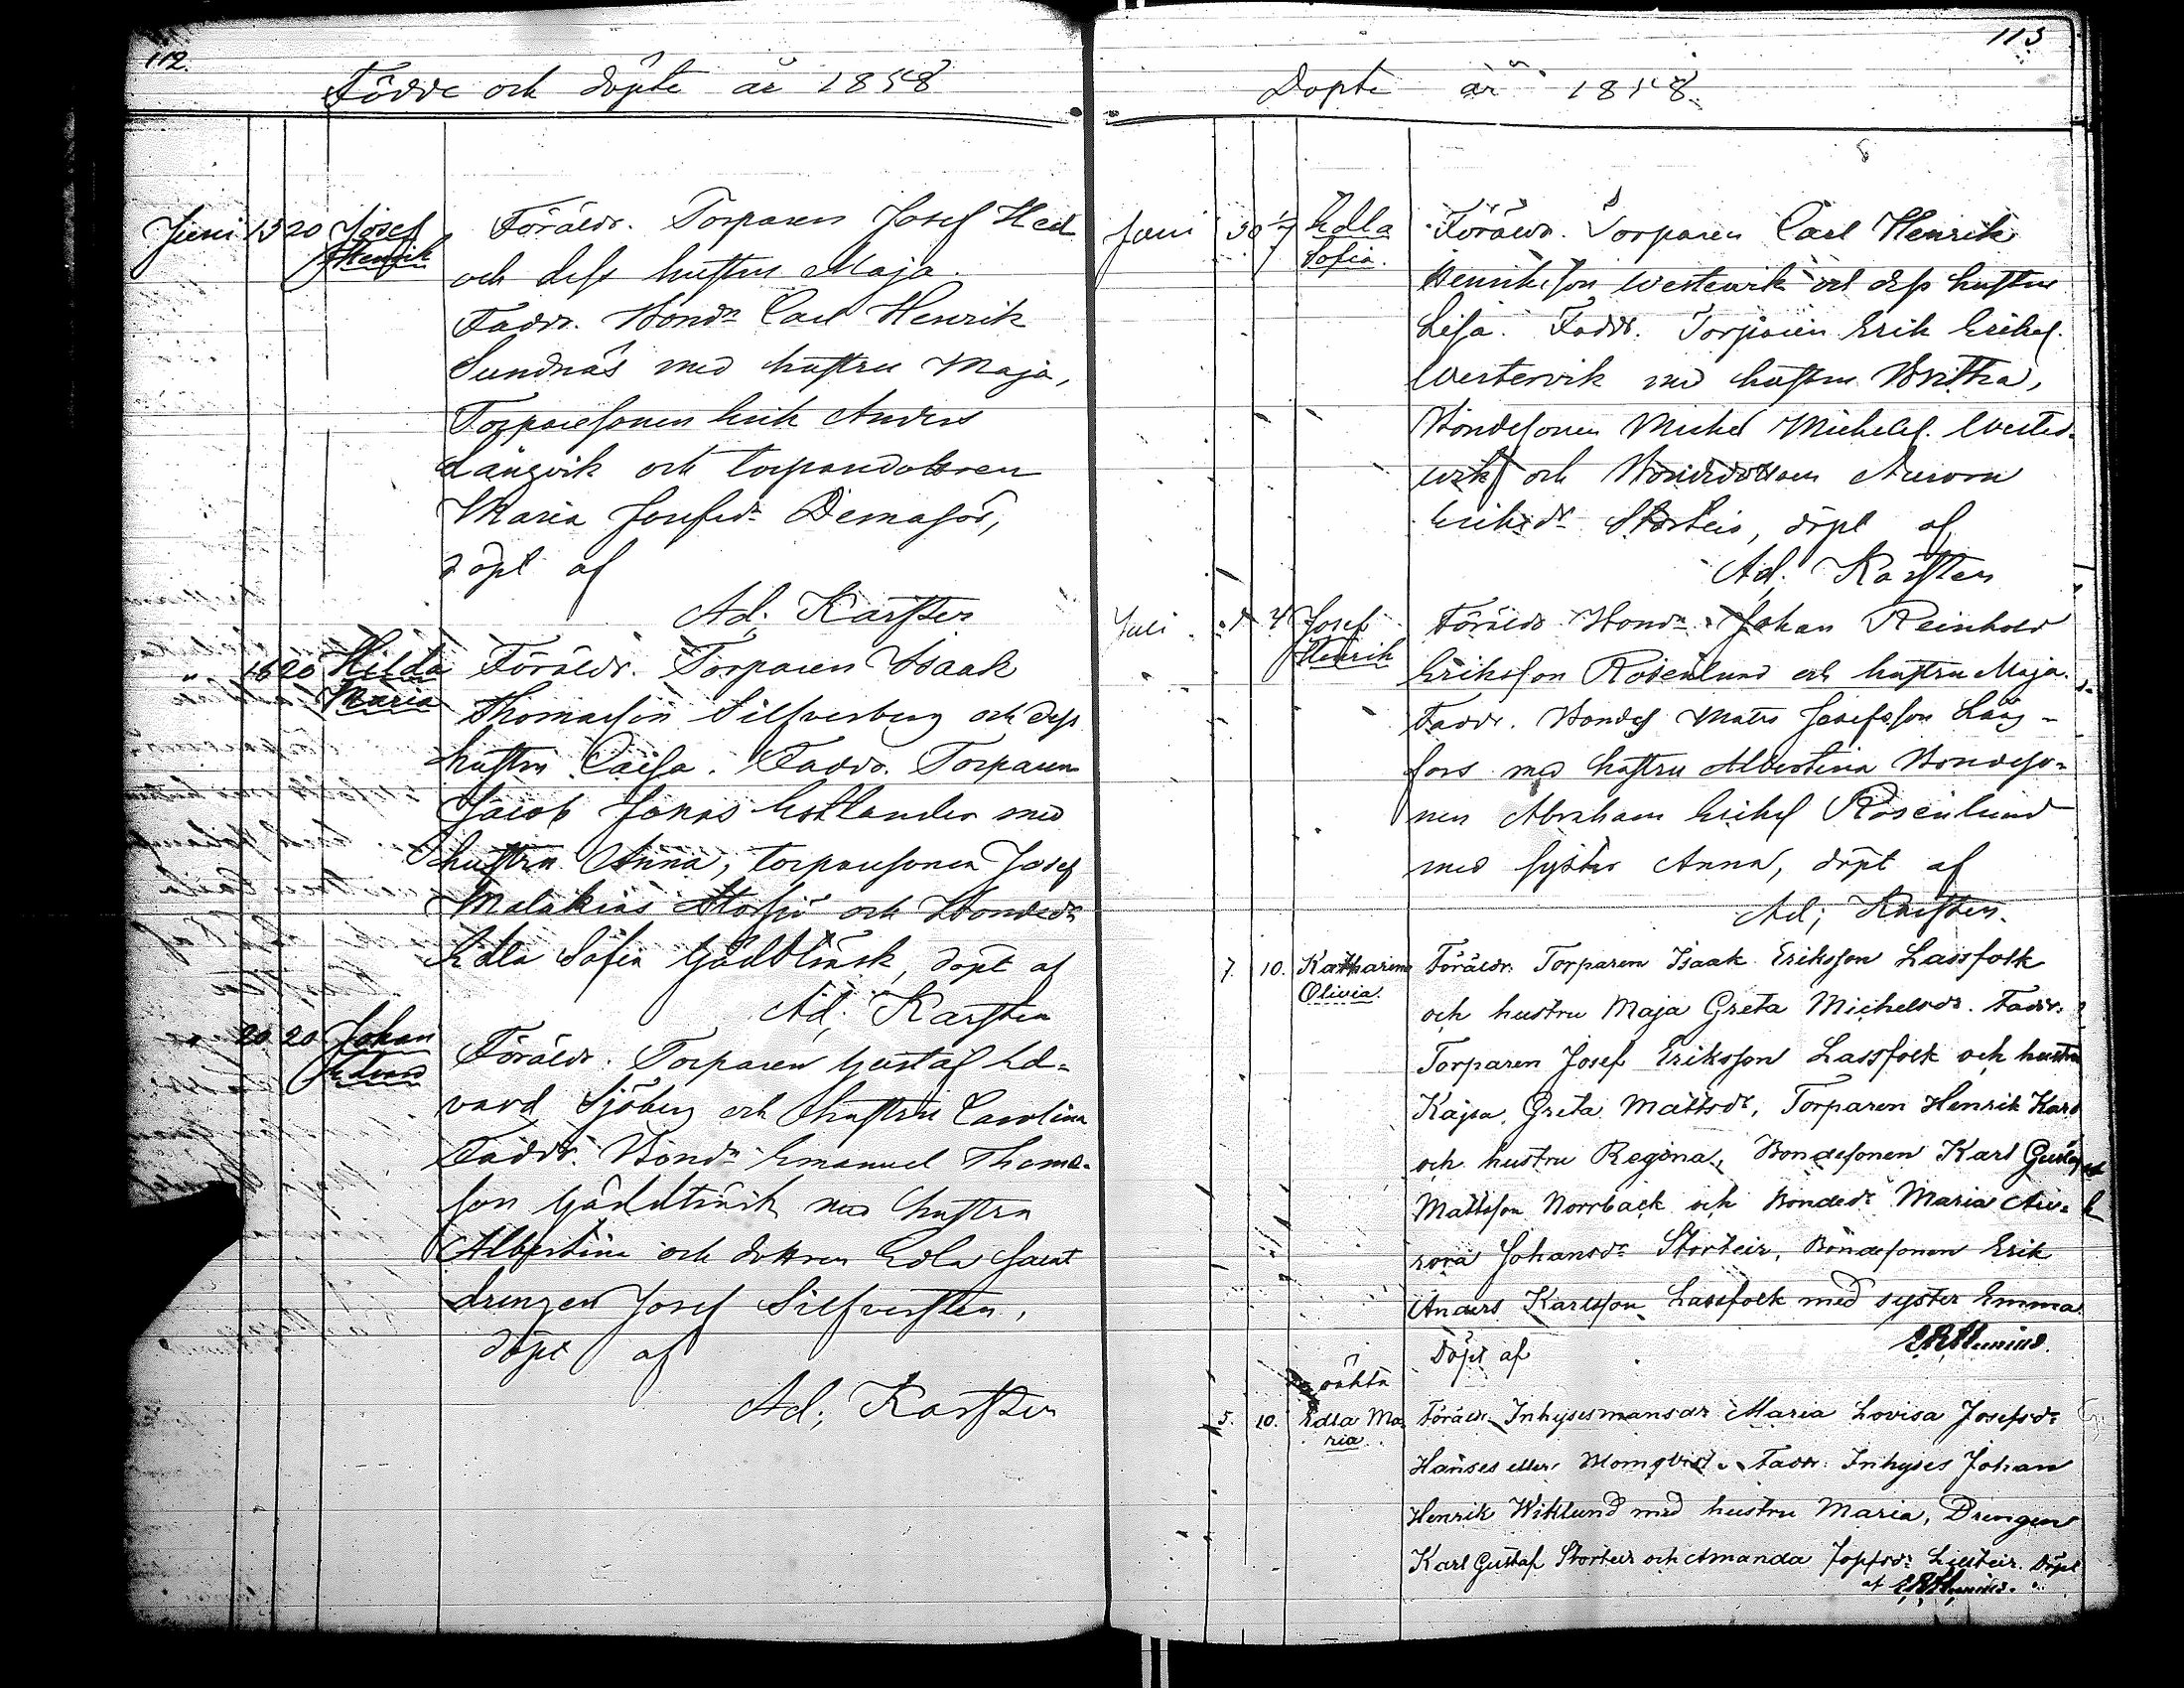 112.
Födde och döpte år 1858
Juni 15 20 Josef Henrik
Föräldr. Torparen Josef Hed
och dess hustru Maja.
Faddr. Bondn Carl Henrik
Sundnäs med hustru Maja,
Torparesonen Erik Anders
Långvik och torparedottren
Maria Josefsdr
döpt af
Ad. Karsten
" 16 20 Hilda Maria
Föräldr. Torparen Isaak
Thomasson Silfverberg och dess
hustru Caisa. Faddr. Torparen
Jacob Jonas Estlander med
hustru Anna, torparesonen Josef
Malakias Storsjö och Bondedr
Edla Sofia Gäddträsk, döpt af
Ad. Karsten
" 20 20 Johan Edvard
Föräldr. Torparen Gustaf Ed-
vard Sjöberg och hustru Carolina
Faddr. Bondn Emanuel Thoma-
son Gäddträsk med hustru
Albertina och dottren Edla samt
drengen Josef Silfversten,
döpt af
Ad; Karsten
113
Döpte år 1858.
Juni 30 Edla Sofia.
Föräldr. Torparen Carl Henrik
Henriksson Westervik och dess hustru
Lisa. Faddr. Torparen Erik Eriks.
Westervik med hustru Britha,
Bondesonen Michel Michels. Wester-
wik och Bondedottren Aurora
Eriksdr Storteir, döpt af
Ad. Karsten
Juli 1 4 Josef Henrik
Föräldr Bondn Johan Reinhold
Eriksson Rosenlund och hustru Maja.
Faddr. Bondes Matts Josefsson Lång-
fors med hustru Albertina Bondeso-
nen Abraham Eriks Rosenlund
med syster Anna, döpt af
Ad; Karsten.
7. 10. Katharina Olivia.
Föräldr. Torparen Isaak Eriksson Lassfolk
och hustru Maja Greta Michelsdr. Faddr.
Torparen Josef Eriksson Lassfolk och hustru
Kajsa Greta Mattsdr, Torparen Henrik Karo
och hustru Regina, Bondesonen Karl Gustaf
Mattsson Norrback och Bondedr Maria Au-
rora Johansdr Storteir, Bondesonen Erik
Anders Karlsson Lassfolk med syster Emma
Döpt af
oäkta
5. 10. Edla Maria.
Föräldr. Inhysesmansdr Maria Lovisa Josefsdr
Hanses eller Blomqvist. Faddr. Inhyses Johan
Henrik Wiklund med hustru Maria, Drengen
Karl Gustaf Storteir och Amanda Josefsdr Lillteir. Döpt
af